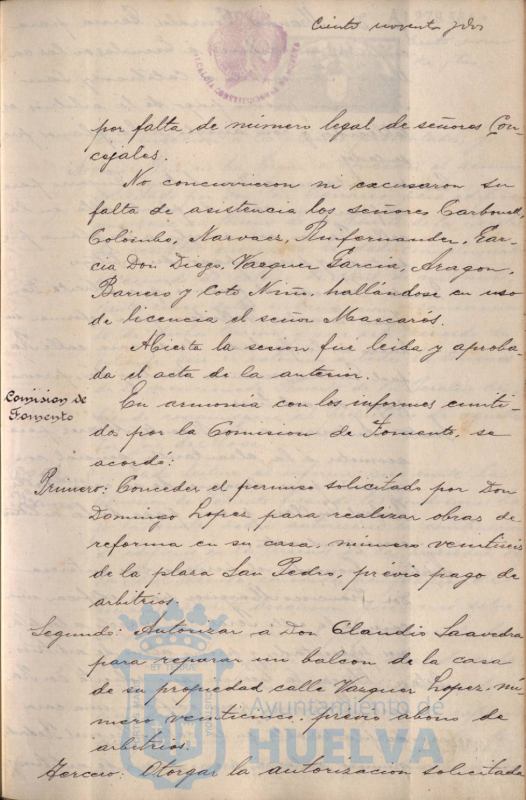 Ciento noventa y dos
ALCALDIA CONSTITUCIONAL DE HUELVA
por falta de número legal de señores Con-
cejales.
No concurrieron ni excusaron su
falta de asistencia los señores Carbonell,
Colombo, Narvaez, Ruifernandez, Gar-
cia Don Diego, Vazquez Garcia, Aragon,
Barrero y Coto Niño, hallándose en uso
de licencia el señor Mascarós.
Abierta la sesion fué leida y aproba-
da el acta de la anterior.
Comision de
Fomento
En armonia con los informes emiti-
dos por la Comision de Fomento, se
acordó:
Primero: Conceder el permiso solicitado por Don
Domingo Lopez para realizar obras de
reforma en su casa, número veintiseis
de la plaza San Pedro, prévio pago de
arbitrios.
Segundo: Autorizar a Don Claudio Saavedra
para reparar un balcon de la casa
de su propiedad calle Vazquez Lopez, nú-
mero veinticinco, prévio abono de
arbitrios.
Tercero: Otorgar la autorizacion solicitada
Ayuntamiento de
HUELVA